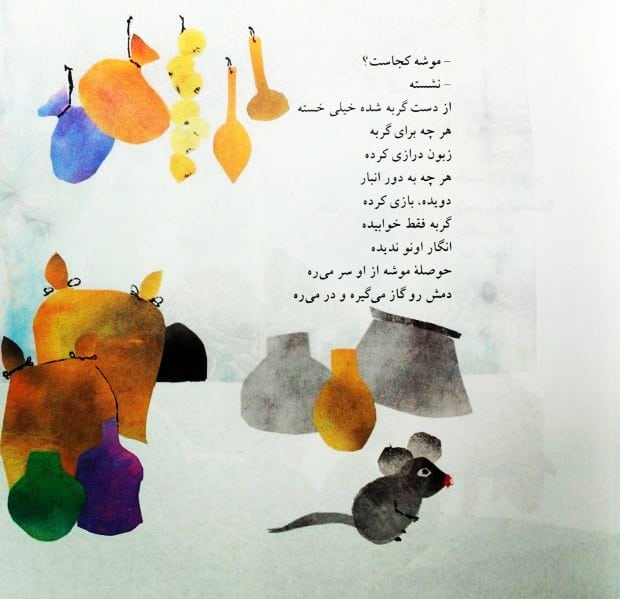 - موشه کجاست؟
- نشسته
از دست گربه شده خیلی خسته
هر چه برای گربه
زبون درازی کرده
هر چه به دور انبار
دویده، بازی کرده
گربه فقط خوابیده
انگار اونو ندیده
حوصلهٔ موشه از او سر می‌ره
دمش رو گاز می‌گیره و در می‌ره